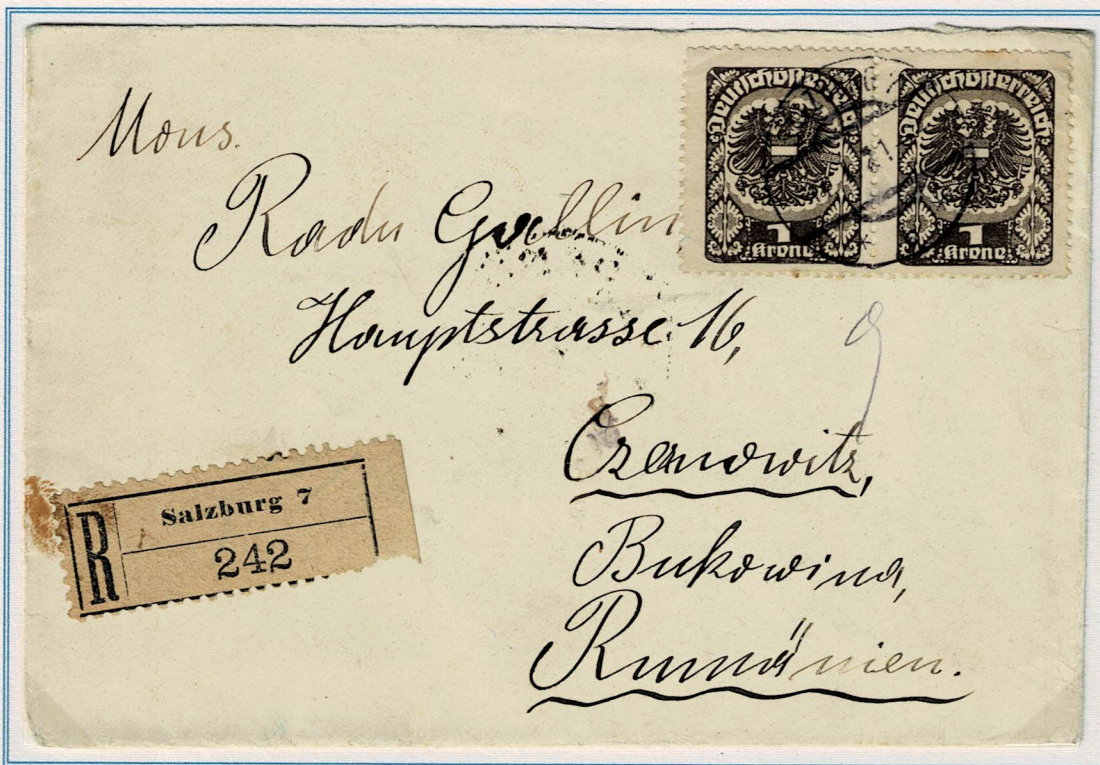 Mons.
Deutschösterreich
1
Krone
Deutschösterreich
1
Krone
Radu
Hauptstrasse 16,
Czenowitz,
Bukowina,
Rumänien.
R
Salzburg 7
242